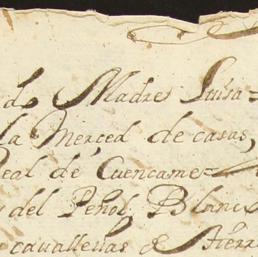 d. Madre Luisa
la Merced de casas,
Real de Cuencame
del Peñol Blanco
cavallerias de Tierra